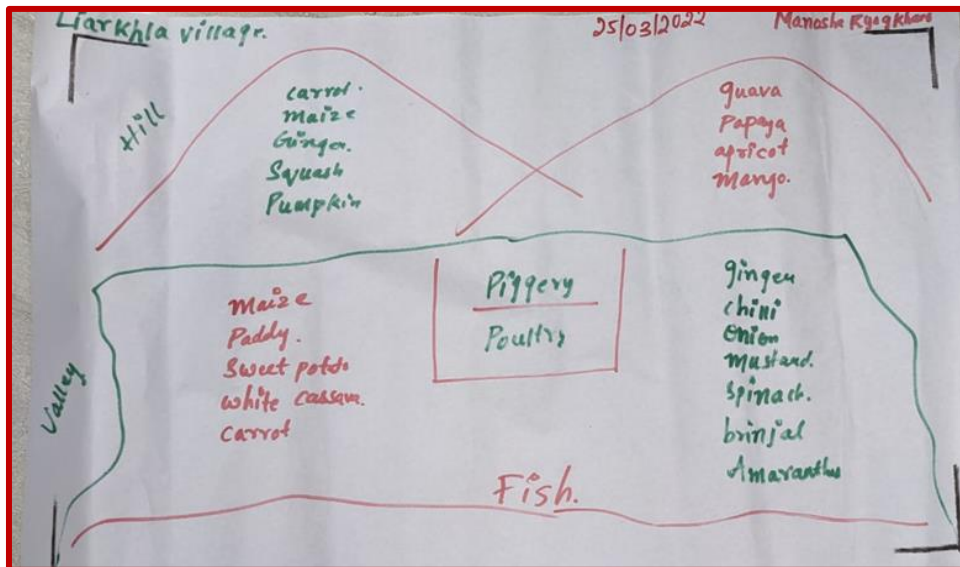 Liarkhla village.
25/03/2022
Manosha
Hill
carrot.
maize
Ginger.
Squash
Pumpkin
guava
Papaya
apricot
mango.
Valley
maize
Paddy.
Sweet potato
white cassava.
carrot
Piggery
Poultry
gingeu
chini
onion
mustand.
spinach.
brinjal
Amaranthus
Fish.